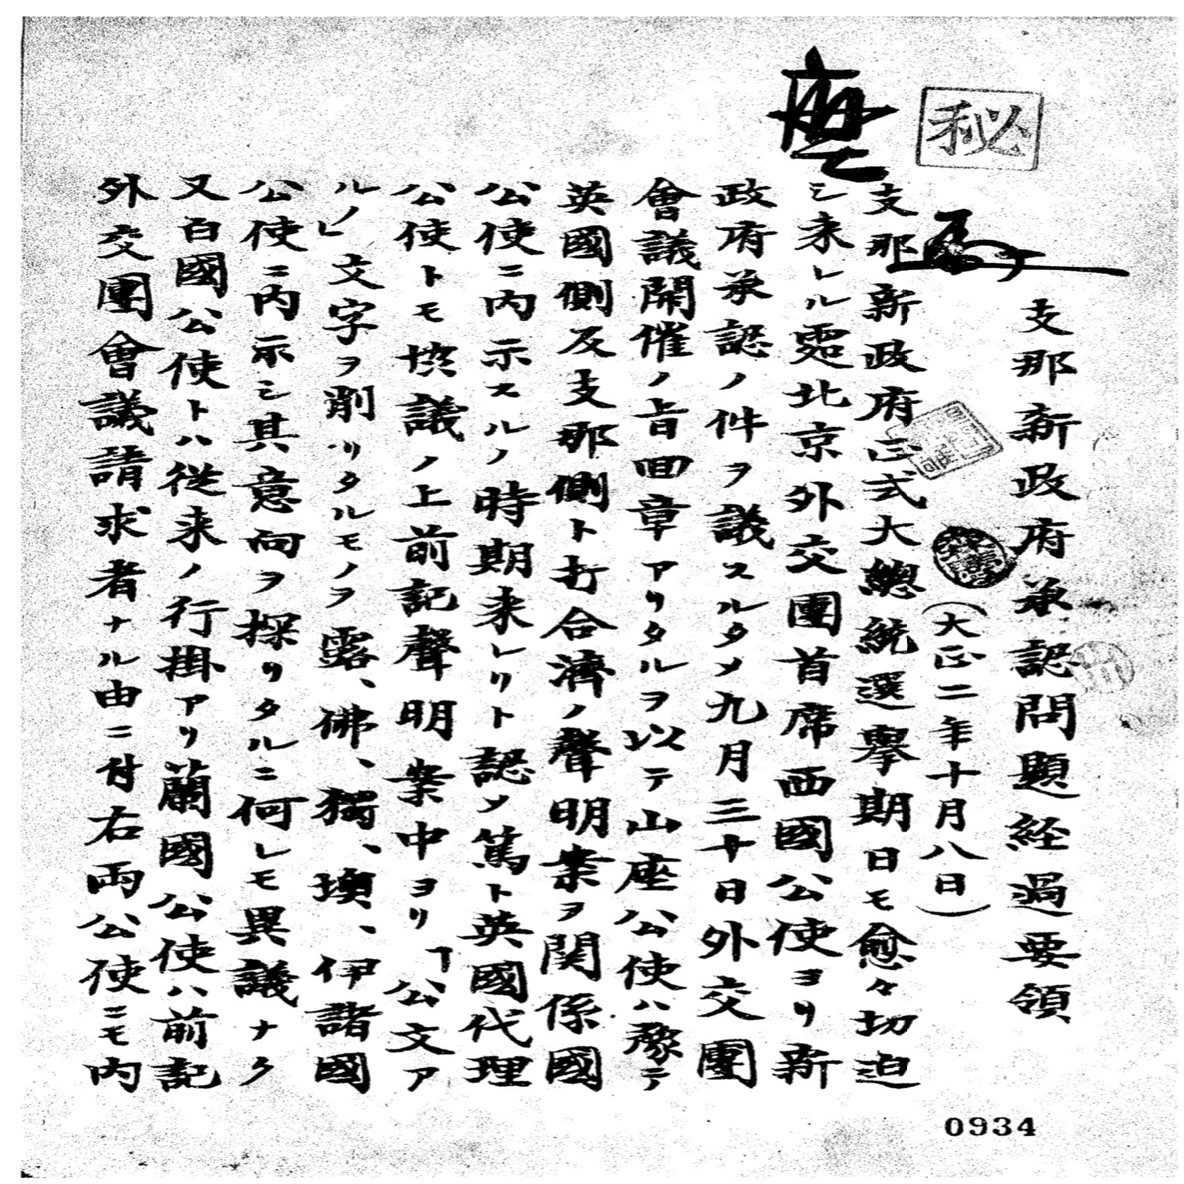 秘
支那新政府承認問題経過要領
(大正二年十月八日)
支那新政府正式大總統選擧期日モ愈々切迫
シ来レル處北京外交團首席西國公使ヨリ新
政府承認ノ件ヲ議スルタメ九月三十日外交團
會議開催ノ旨回章アリタルヲ以テ山座公使ハ豫テ
英國側及支那側ト打合濟ノ聲明案ヲ関係國
公使ニ内示スルノ時期来レリト認メ篤ト英國代理
公使トモ協議ノ上前記聲明案中ヨリ「公文ア
ル」ノ文字ヲ削リタルモノヲ露、佛、獨、墺、伊諸國
公使ニ内示シ其意向ヲ探リタルニ何レモ異議ナク
又白國公使トハ從来ノ行掛アリ蘭國公使ハ前記
外交團會議請求者ナル由ニ付右両公使ニモ内
0934